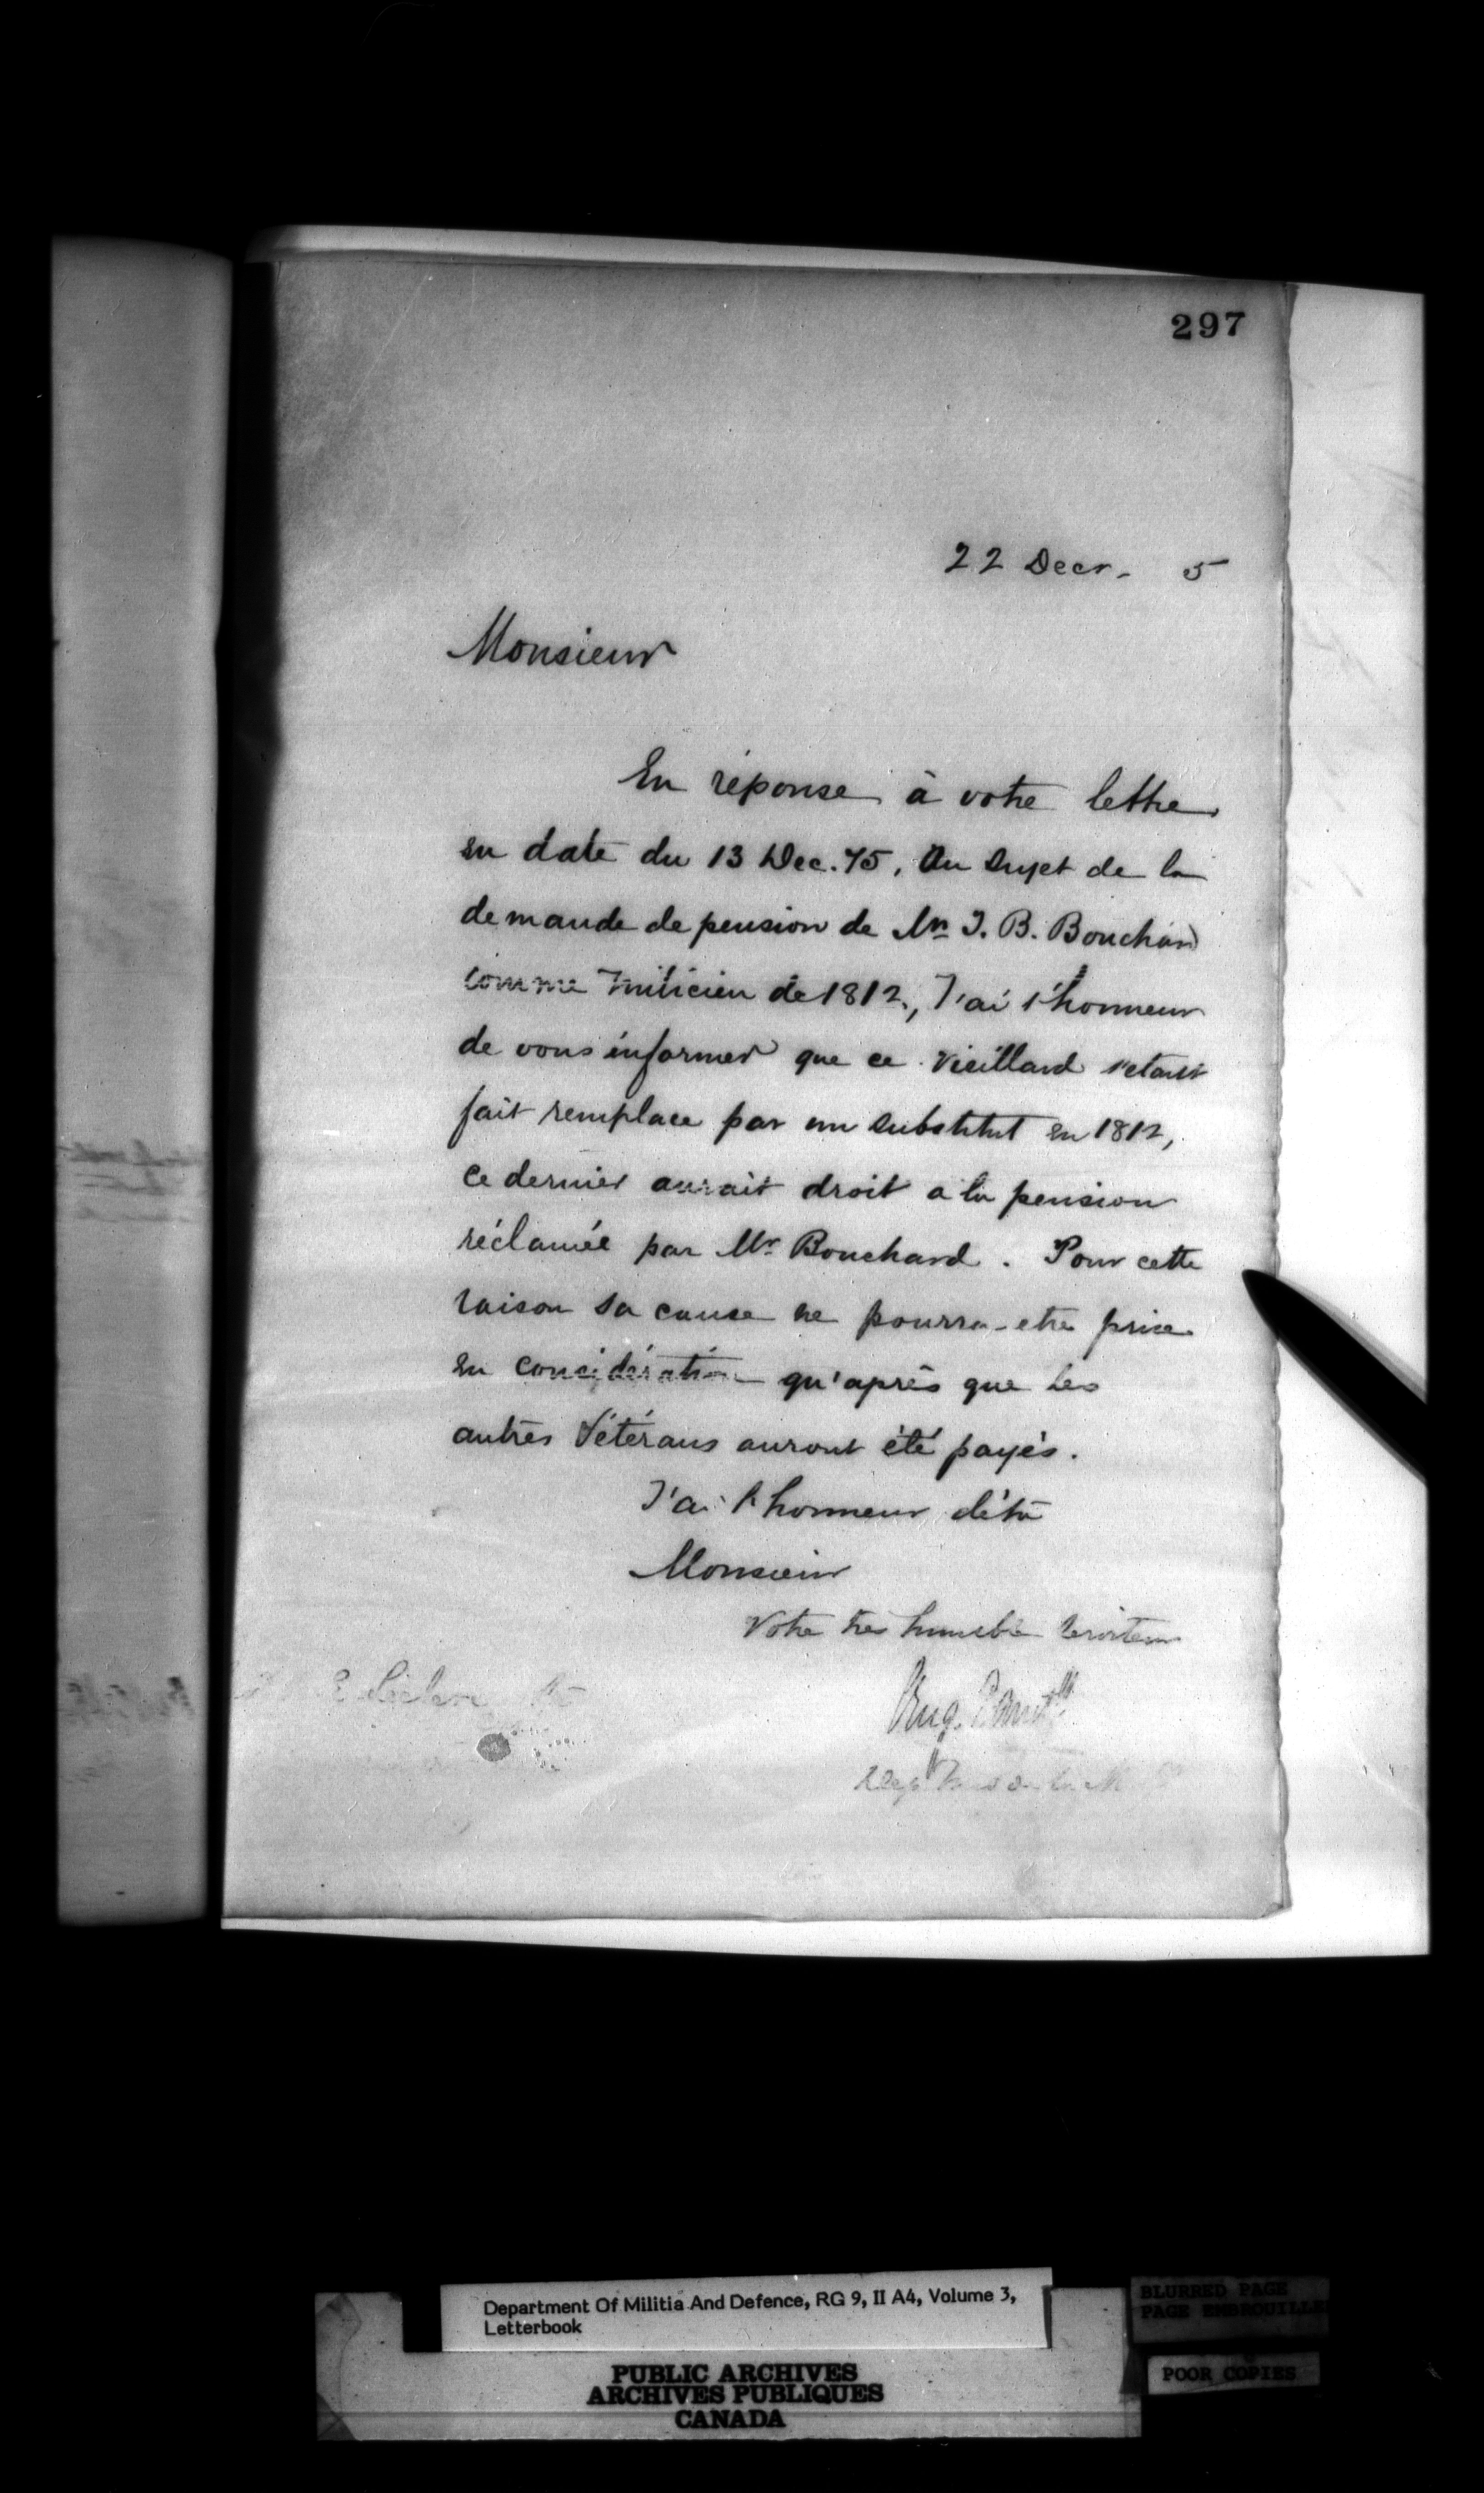 297
22 Decr. 5
Monsieur
En réponse à votre lettre
en date du 13 Dec. 75, Au Sujet de la
demande de pension de Mr J. B. Bouchard
comme milicien de 1812, J'ai l'honneur
de vous informer que ce vieillard s'etant
fait remplace par un substitut en 1812,
ce dernier aurait droit a la pension
réclamée par Mr Bouchard. Pour cette
raison sa cause ne pourra-etre prise
en considération qu'après que les
autres Vétérans auront été payés.
J'ai l'honneur d'être
Monsieur
Votre tres humble Serviteur
E Leclerc
Aug.
Department Of Militia And Defence, RG 9, II A4, Volume 3,
Letterbook
PUBLIC ARCHIVES
ARCHIVES PUBLIQUES
CANADA
BLURRED PAGE
PAGE EMBROUILLE
POOR COPIES